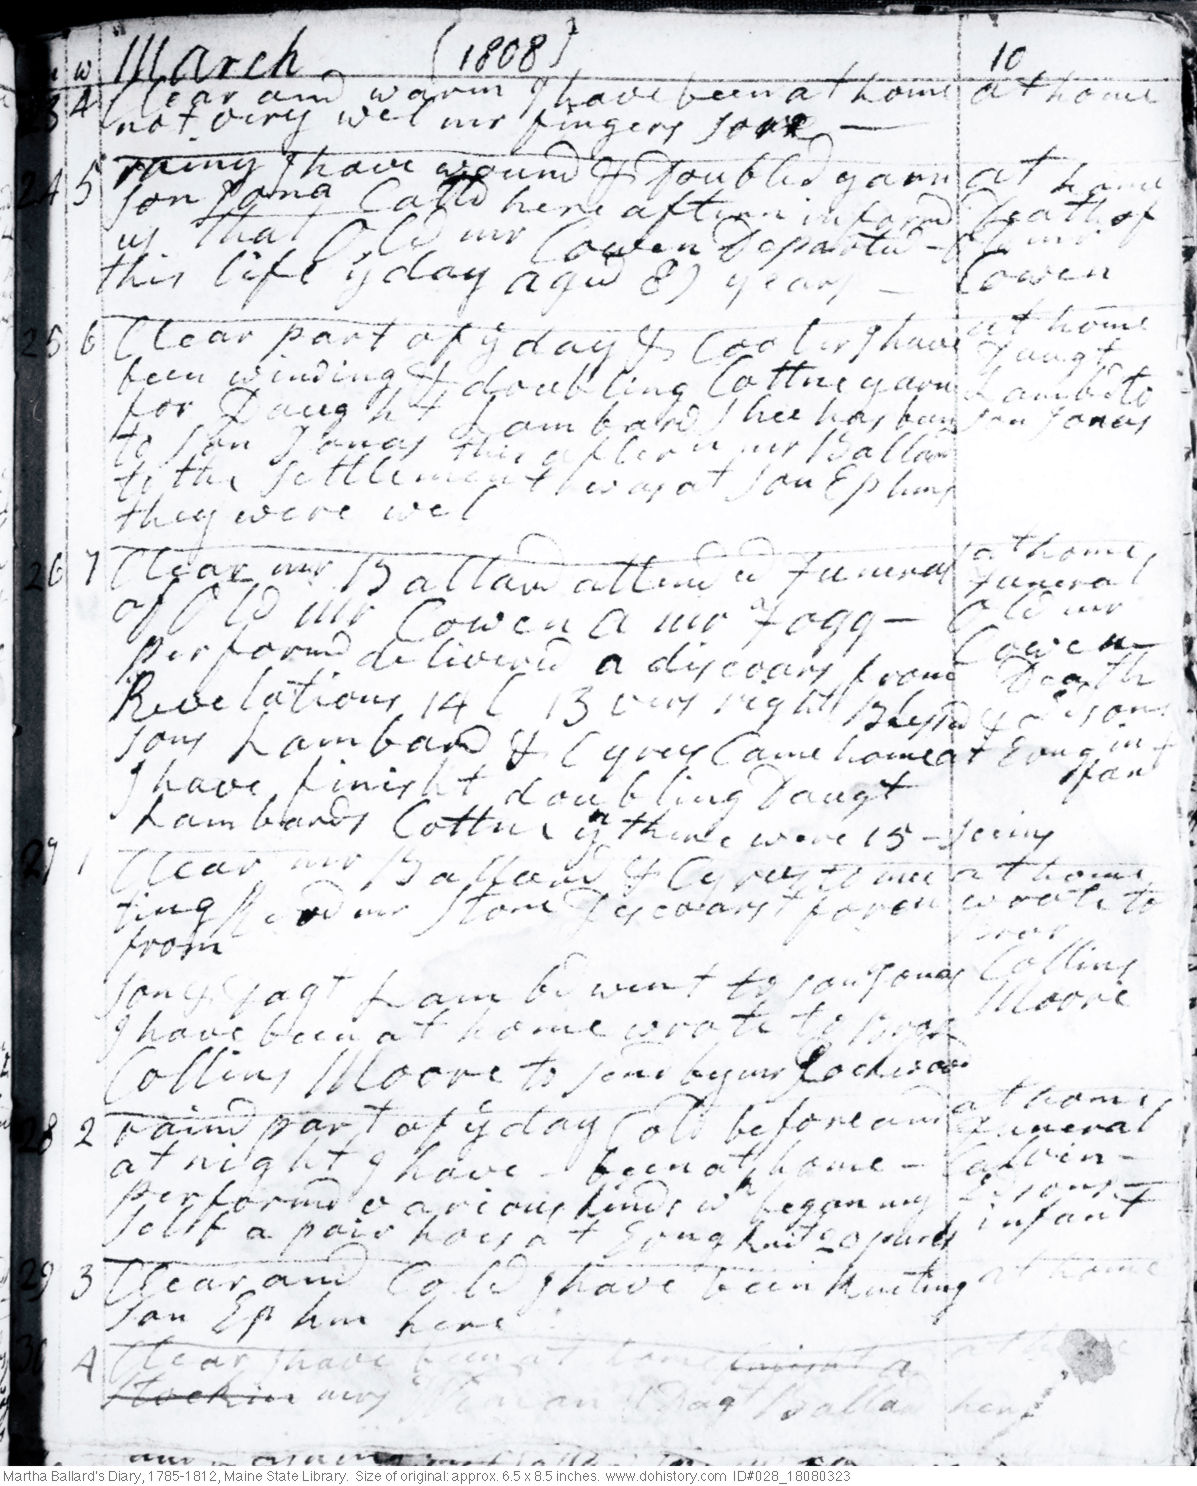 w March (1808) 10
23 4 Clear and warm I have been at home at home
not very wel my fingers sore —
24 5 rainy I have wound & doubled yarn at home
son Jona Calld here aftern inform'd Death of
us that Old mr Cowen Departed old mr
this life y day aged 87 years — Cowen
25 6 Clear part of y day & Cooler I have at home
been winding & doubling Cottne yarn Daugt
for Daught Lambard shee has been Lambd to
to son Jonas this aftern mr Ballard son Jonas
to the settlement was at son Ephms
they were wel
26 7 Clear mr Ballard attended funeral at home
of Old mr Cowen a mr Fogg — funeral
performd delivered a discoars from Old mr
Revelations 14 C 13 vers right Blessd &c Cowen
sons Lambard & Cyrus Came home at Eving Death
I have finisht doubling Daugt Edsons infant
Lambards Cottne yn there were 15 Skeins
27 1 Clear mr Ballard & Cyrus to mee at home
ting heard mr Stone Discoars foren wrote to
from
son & Dagt Lambd went to son Jonas Collins
I have been at home wrote to
Collins Moore to send by mr Moore
28 2 raind part of y day Cold before and at home
at night I have — been at home — funeral
performd various kinds wk began my Calvin
self a pair hoes at Evng knit 20 purls Edsons infant
29 3 Clear and Cold I have been knitting at home
son Ephm here
30 4 Clear I have been at home knit a at home
Stockin mrs & Dagt Ballard here
Martha Ballard's Diary, 1785-1812, Maine State Library. Size of original: approx. 6.5 x 8.5 inches. www.dohistory.com ID#028_18080323